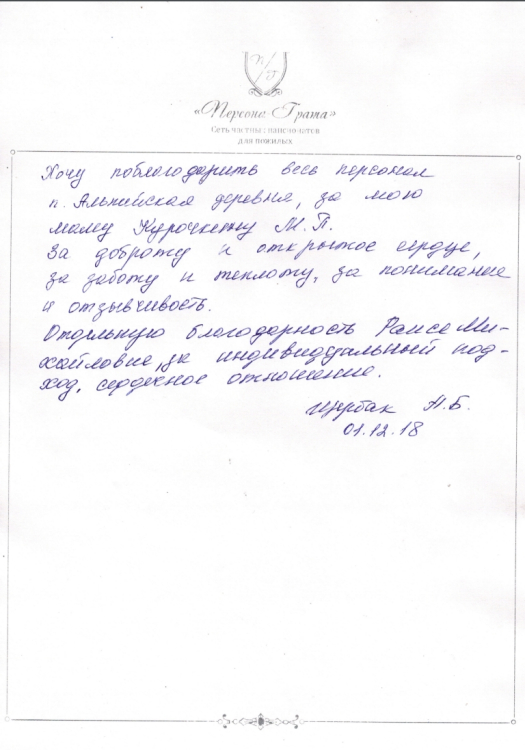 П/Г
«Персона Грата»
Сеть частных пансионатов
для пожилых
Хочу поблагодарить весь персонал
п. Альпийская деревня, за мою
маму Курочкину М.П.
За доброту и открытое сердце,
за заботу и теплоту, за понимание
и отзывчивость.
Отдельную благодарность Раисе Ми-
хайловне, за индивидуальный под-
ход, сердечное отношение.
Щербак Н.Б.
01.12.18